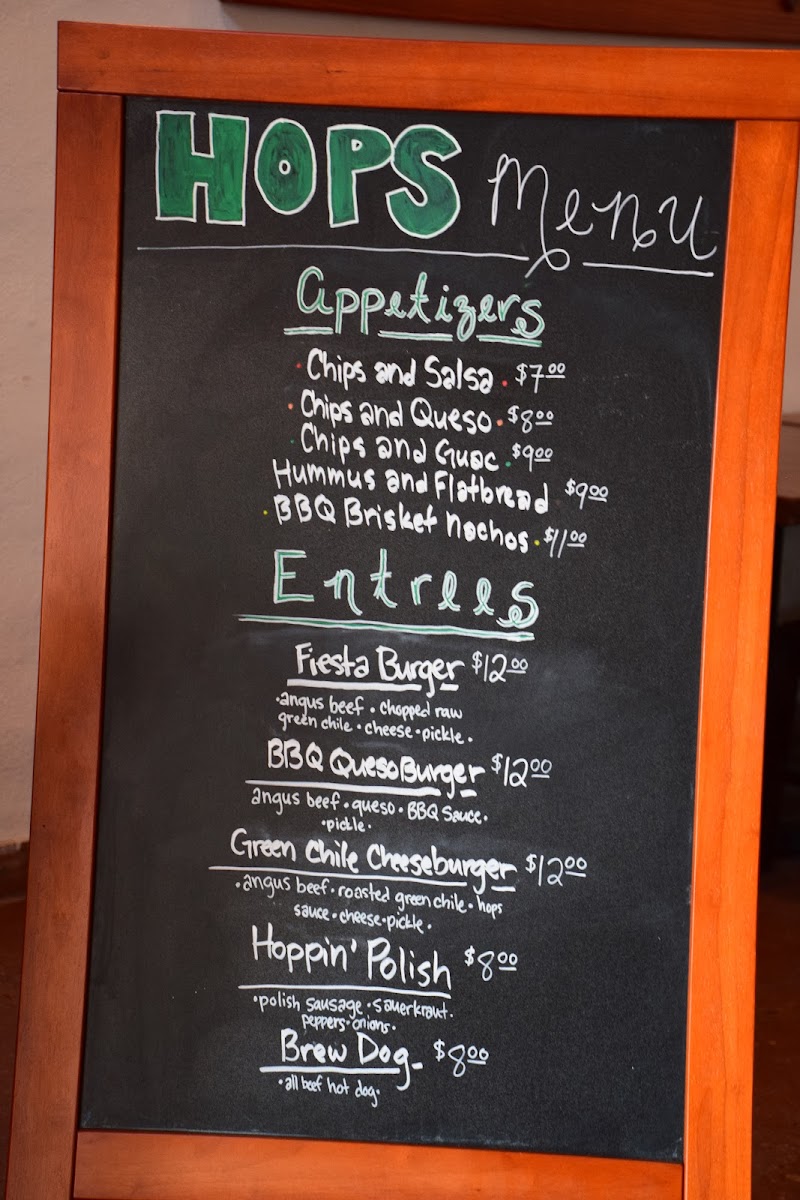 HOPS Menu
Appetizers
Chips and Salsa • $7.00
Chips and Queso • $8.00
Chips and Guac • $9.00
Hummus and Flatbread $9.00
• BBQ Brisket Nachos • $11.00
Entrees
Fiesta Burger $12.00
• angus beef • chopped raw
green chile • cheese • pickle •
BBQ Queso Burger $12.00
angus beef • queso • BBQ Sauce •
• pickle •
Green Chile Cheeseburger $12.00
• angus beef • roasted green chile • hops
sauce • cheese • pickle •
Hoppin' Polish $8.00
• polish sausage • sauerkraut •
peppers • onions •
Brew Dog $8.00
• all beef hot dog •